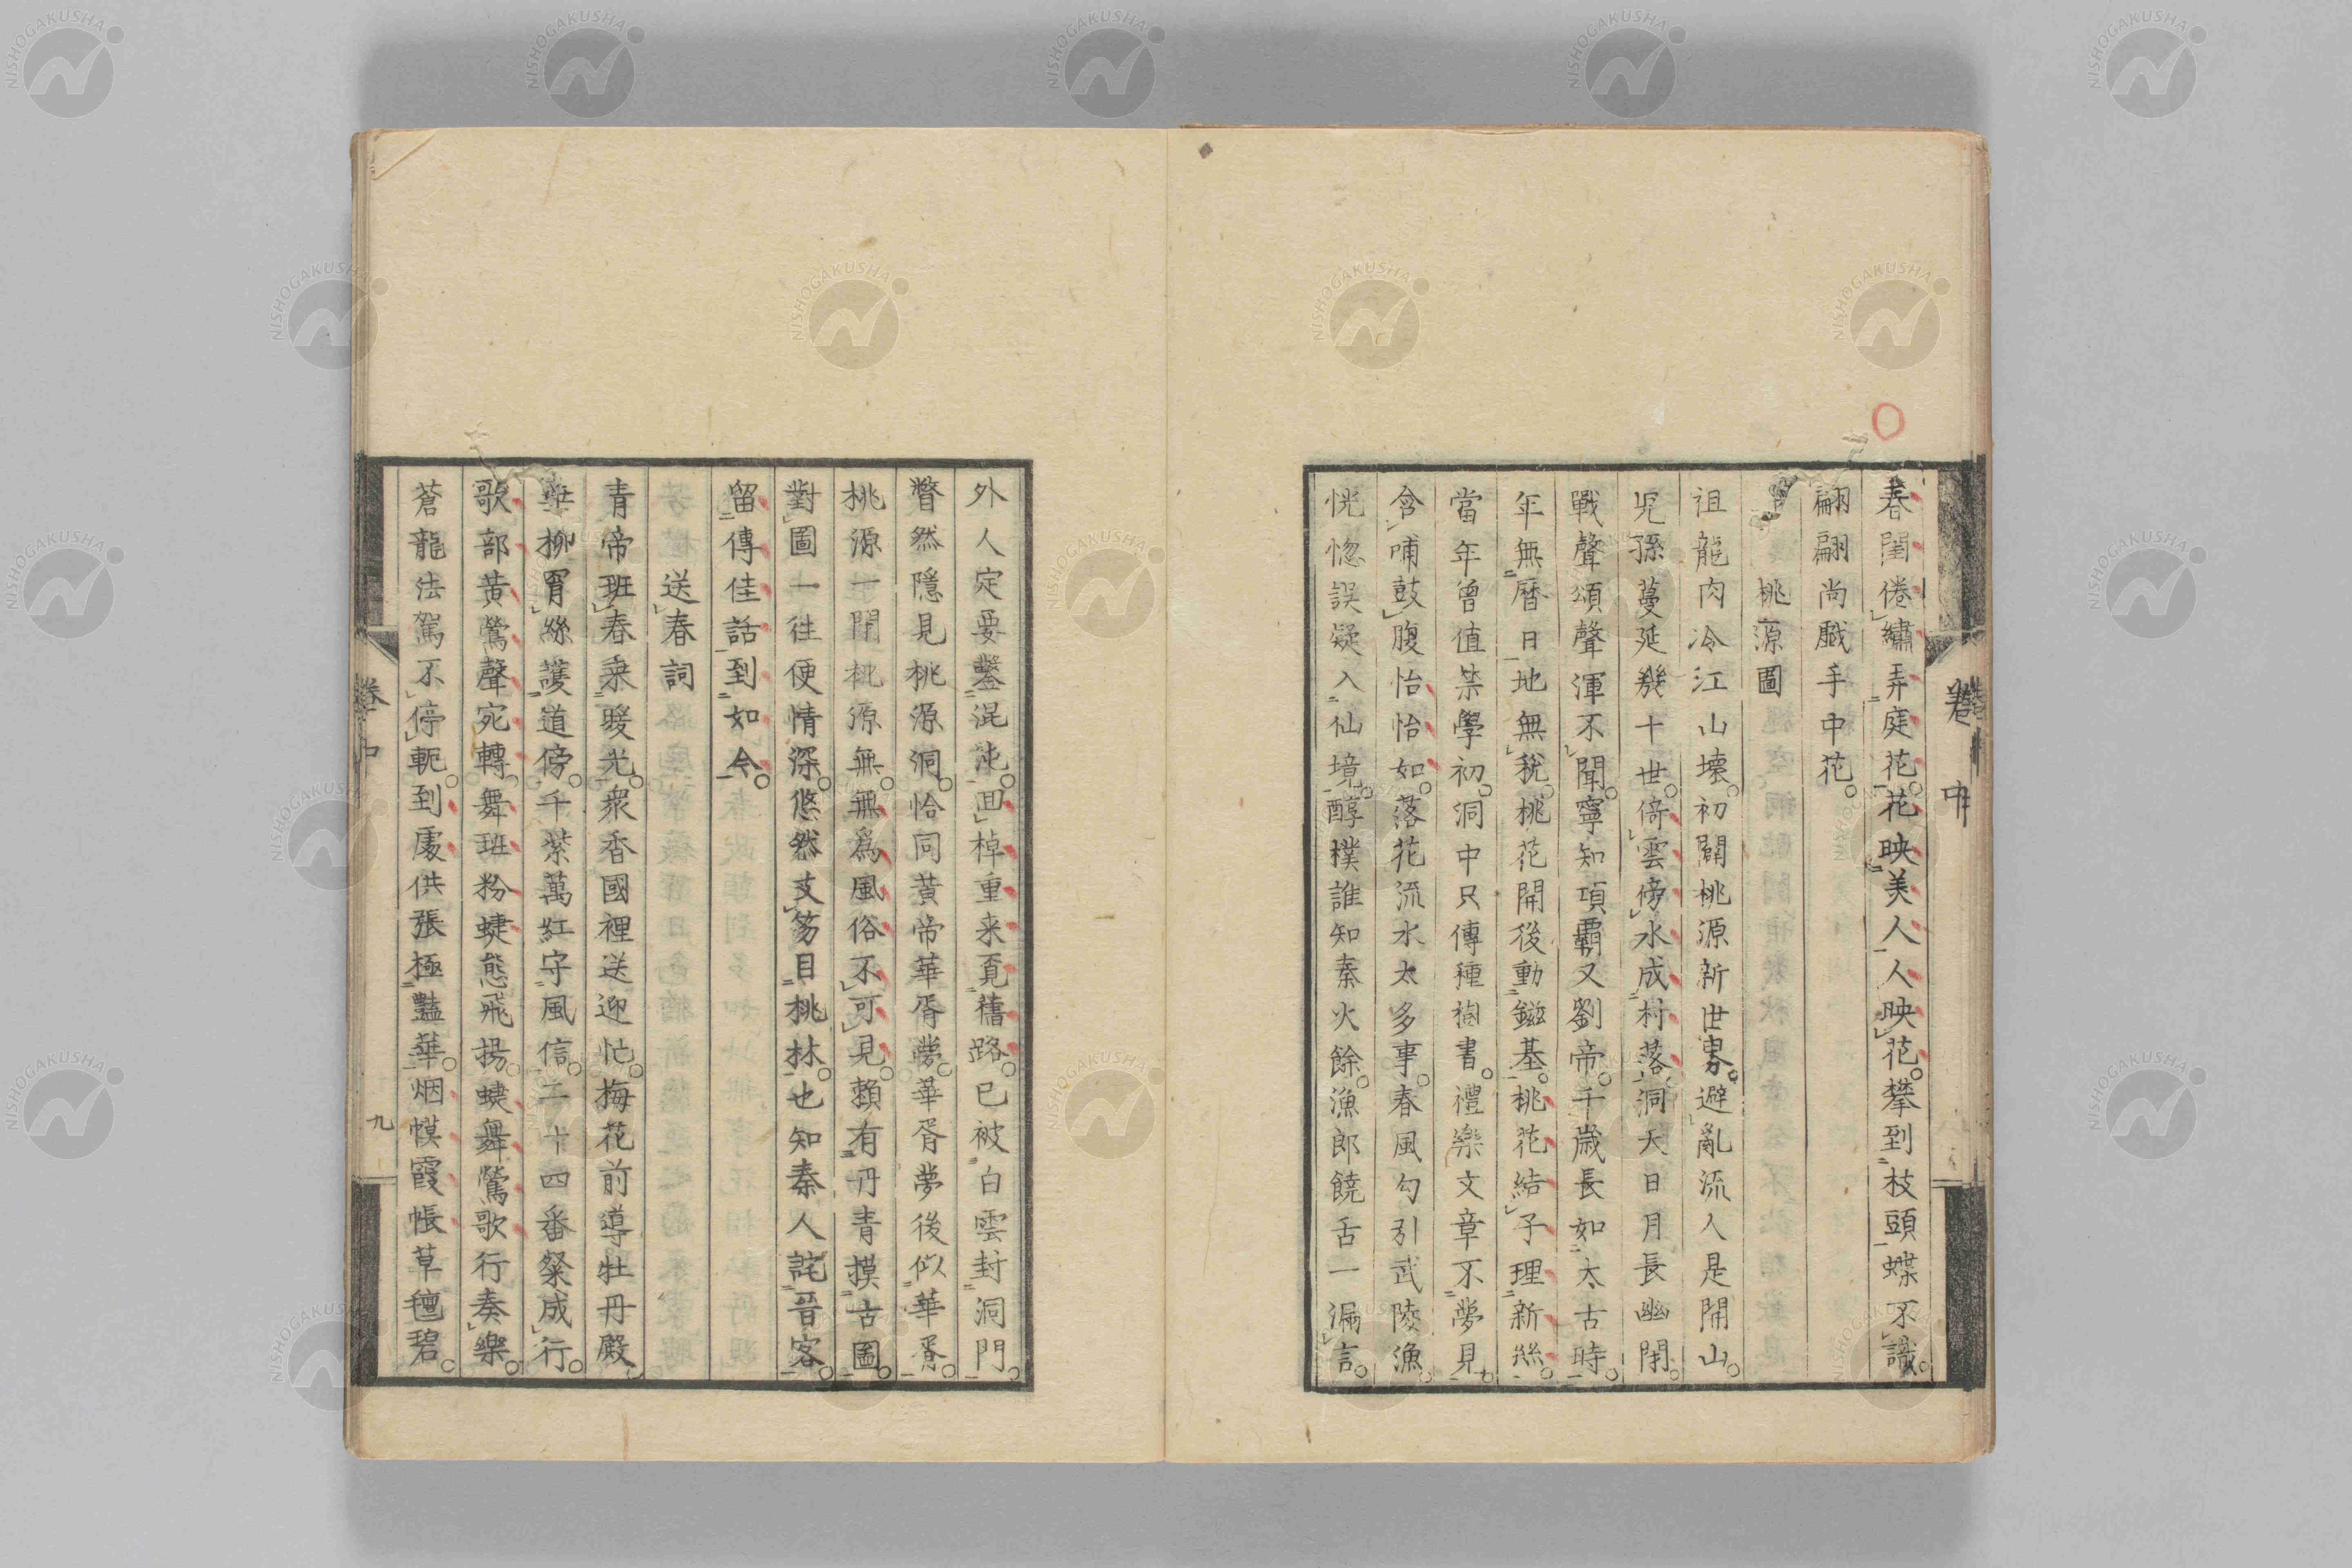 春閨倦繡弄庭花花映美人人映花攀到枝頭蝶不識
翩翩尚戲手中花
桃源圖
祖龍肉冷江山壞初闢桃源新世界避亂流人是開山
児孫蔓延幾十世倚雲傍水成村落洞天日月長幽閉
戰聲頌聲渾不聞寧知項覇又劉帝千歳長如太古時
年無曆日地無税桃花開後動鎡基桃花結子理新絲
當年曾值禁學初洞中只傳種樹書禮樂文章不夢見
含哺鼓腹怡怡如落花流水太多事春風勾引武陵漁
恍惚誤疑入仙境醇樸誰知秦火餘漁郎饒舌一漏言
外人定要鑿混沌回棹重来覓舊路已被白雲封洞門
瞥然隱見桃源洞恰同黃帝華胥夢華胥夢後似華胥
桃源一閉桃源無無爲風俗不可見賴有丹青摸古圖
對圖一往便情深悠然芟笏目桃林也知秦人詫晉客
留傳佳話到如今
送春詞
青帝班春乘暖光衆香國裡送迎忙梅花前導牡丹殿
柳罥絲護道傍千紫萬紅守風信二十四番粲成行
歌部黄鶯聲宛轉舞班粉蜨態飛揚蜨舞鶯歌行奏樂
蒼龍法駕不停軛到處供張極豔華烟幙霞帳草氊碧
卷中
九
卷中
NISHOGAKUSHA